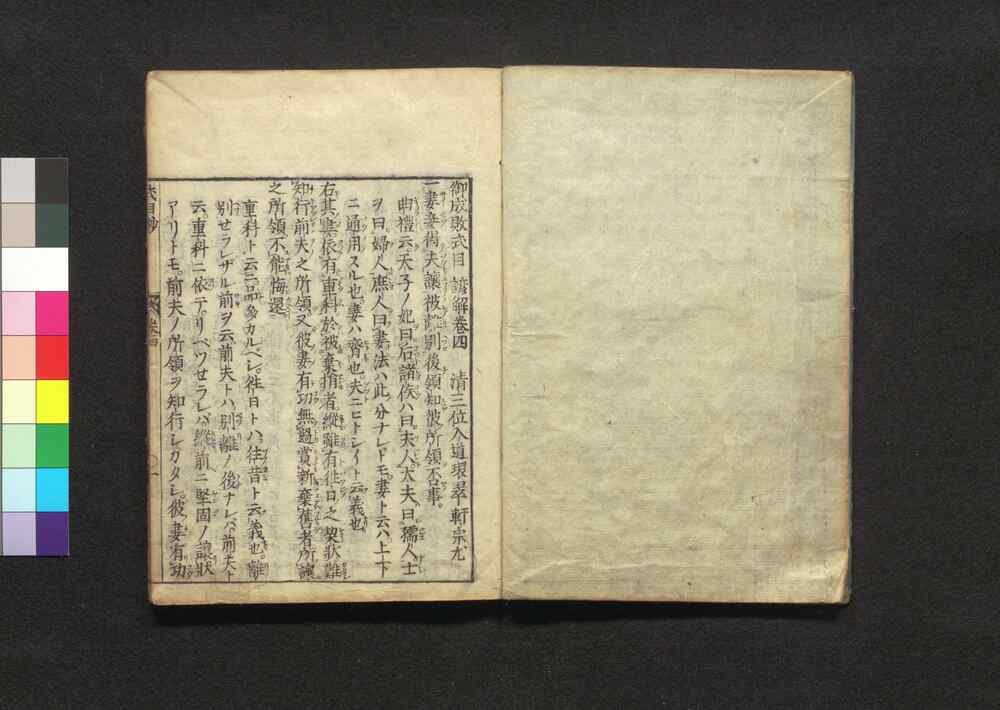 御成敗式目諺解卷四　清三位入道環翠軒宗尤
一妻妾得夫讓被離別後領知彼所領否事。
曲禮云天子ノ妃曰后諸侯ハ曰夫人大夫曰孺人士
ヲ曰婦人庶人曰妻法ハ此分ナレドモ妻ト云ハ上下
ニ通用スル也妻ハ齊也夫ニヒトシイト云義也
右其妻依有重科於被棄捐者縱雖有往日之契狀難
知行前夫之所領又彼妻有功無過賞新棄舊者所讓
之所領不能悔還
重科ト云ニ品多カルベシ。往日トハ往昔ト云義也。離
別せラレザル前ヲ云前夫トハ別離ノ後ナレバ前夫ト
云重科ニ依テ。リベツせラレバ縱前ニ堅固ノ讓狀
アリトモ。前夫ノ所領ヲ知行シガタシ。彼妻有功
式目抄　卷四　〇一